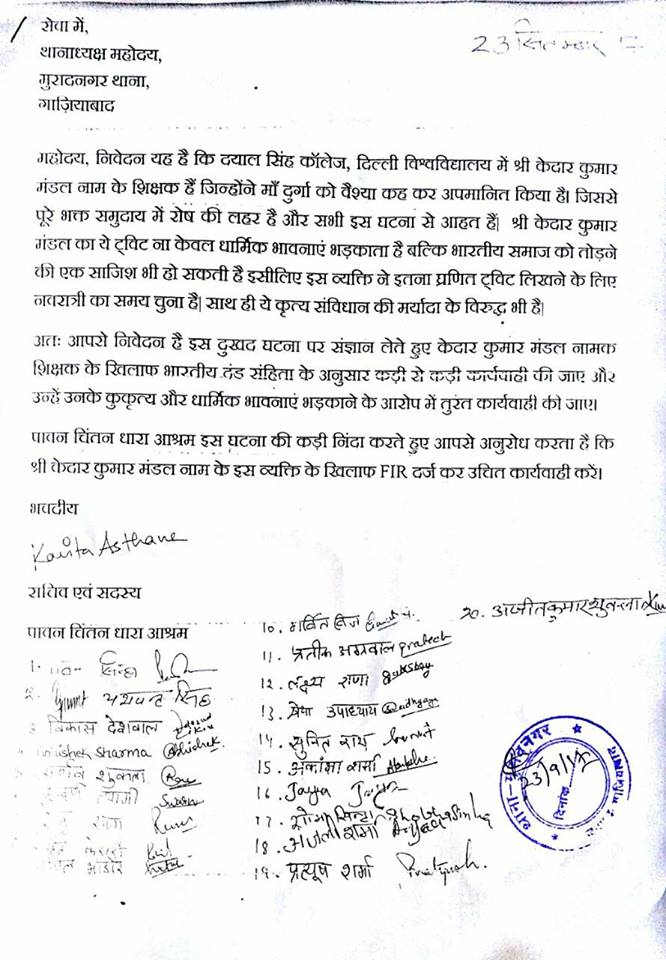 सेवा में,
23 सितम्बर
थानाध्यक्ष महोदय,
मुरादनगर थाना,
गाज़ियाबाद
महोदय, निवेदन यह है कि दयाल सिंह कॉलेज, दिल्ली विश्वविद्यालय में श्री केदार कुमार
मंडल नाम के शिक्षक हैं जिन्होंने माँ दुर्गा को वैश्या कह कर अपमानित किया है। जिससे
पूरे भक्त समुदाय में रोष की लहर है और सभी इस घटना से आहत हैं| श्री केदार कुमार
मंडल का ये ट्विट ना केवल धार्मिक भावनाएं भड़काता है बल्कि भारतीय समाज को तोड़ने
की एक साजिश भी हो सकती है इसीलिए इस व्यक्ति ने इतना घ्रणित ट्विट लिखने के लिए
नवरात्री का समय चुना है| साथ ही ये कृत्य संविधान की मर्यादा के विरुद्ध भी है|
अतः आपसे निवेदन है इस दुखद घटना पर संज्ञान लेते हुए केदार कुमार मंडल नामक
शिक्षक के खिलाफ भारतीय दंड संहिता के अनुसार कड़ी से कड़ी कार्यवाही की जाए और
उन्हें उनके कुकृत्य और धार्मिक भावनाएं भड़काने के आरोप में तुरंत कार्यवाही की जाए।
पावन चिंतन धारा आश्रम इस घटना की कड़ी निंदा करते हुए आपसे अनुरोध करता है कि
श्री केदार कुमार मंडल नाम के इस व्यक्ति के खिलाफ FIR दर्ज कर उचित कार्यवाही करें।
भवदीय
Kavita Asthana
सचिव एवं सदस्य
पावन चिंतन धारा आश्रम
1. सिन्हा
2. यशवन्त सिंह
3. विकास देशवाल
4. Abhishek Sharma Abhishek
शुक्ला
त्यागी
राणा
10. गर्वित विज
11. प्रतीक अग्रवाल Prateek
12. लक्ष्य राणा
13. उपाध्याय
14. सुमित राय
15. आकांक्षा शर्मा
16. Jayya
17. Shobha Sinha
18. शर्मा
19. प्रत्यूष शर्मा Pratyush.
20. अजीत कुमार शुक्ला
थाना-मुरादनगर
23/9/17
दिनांक